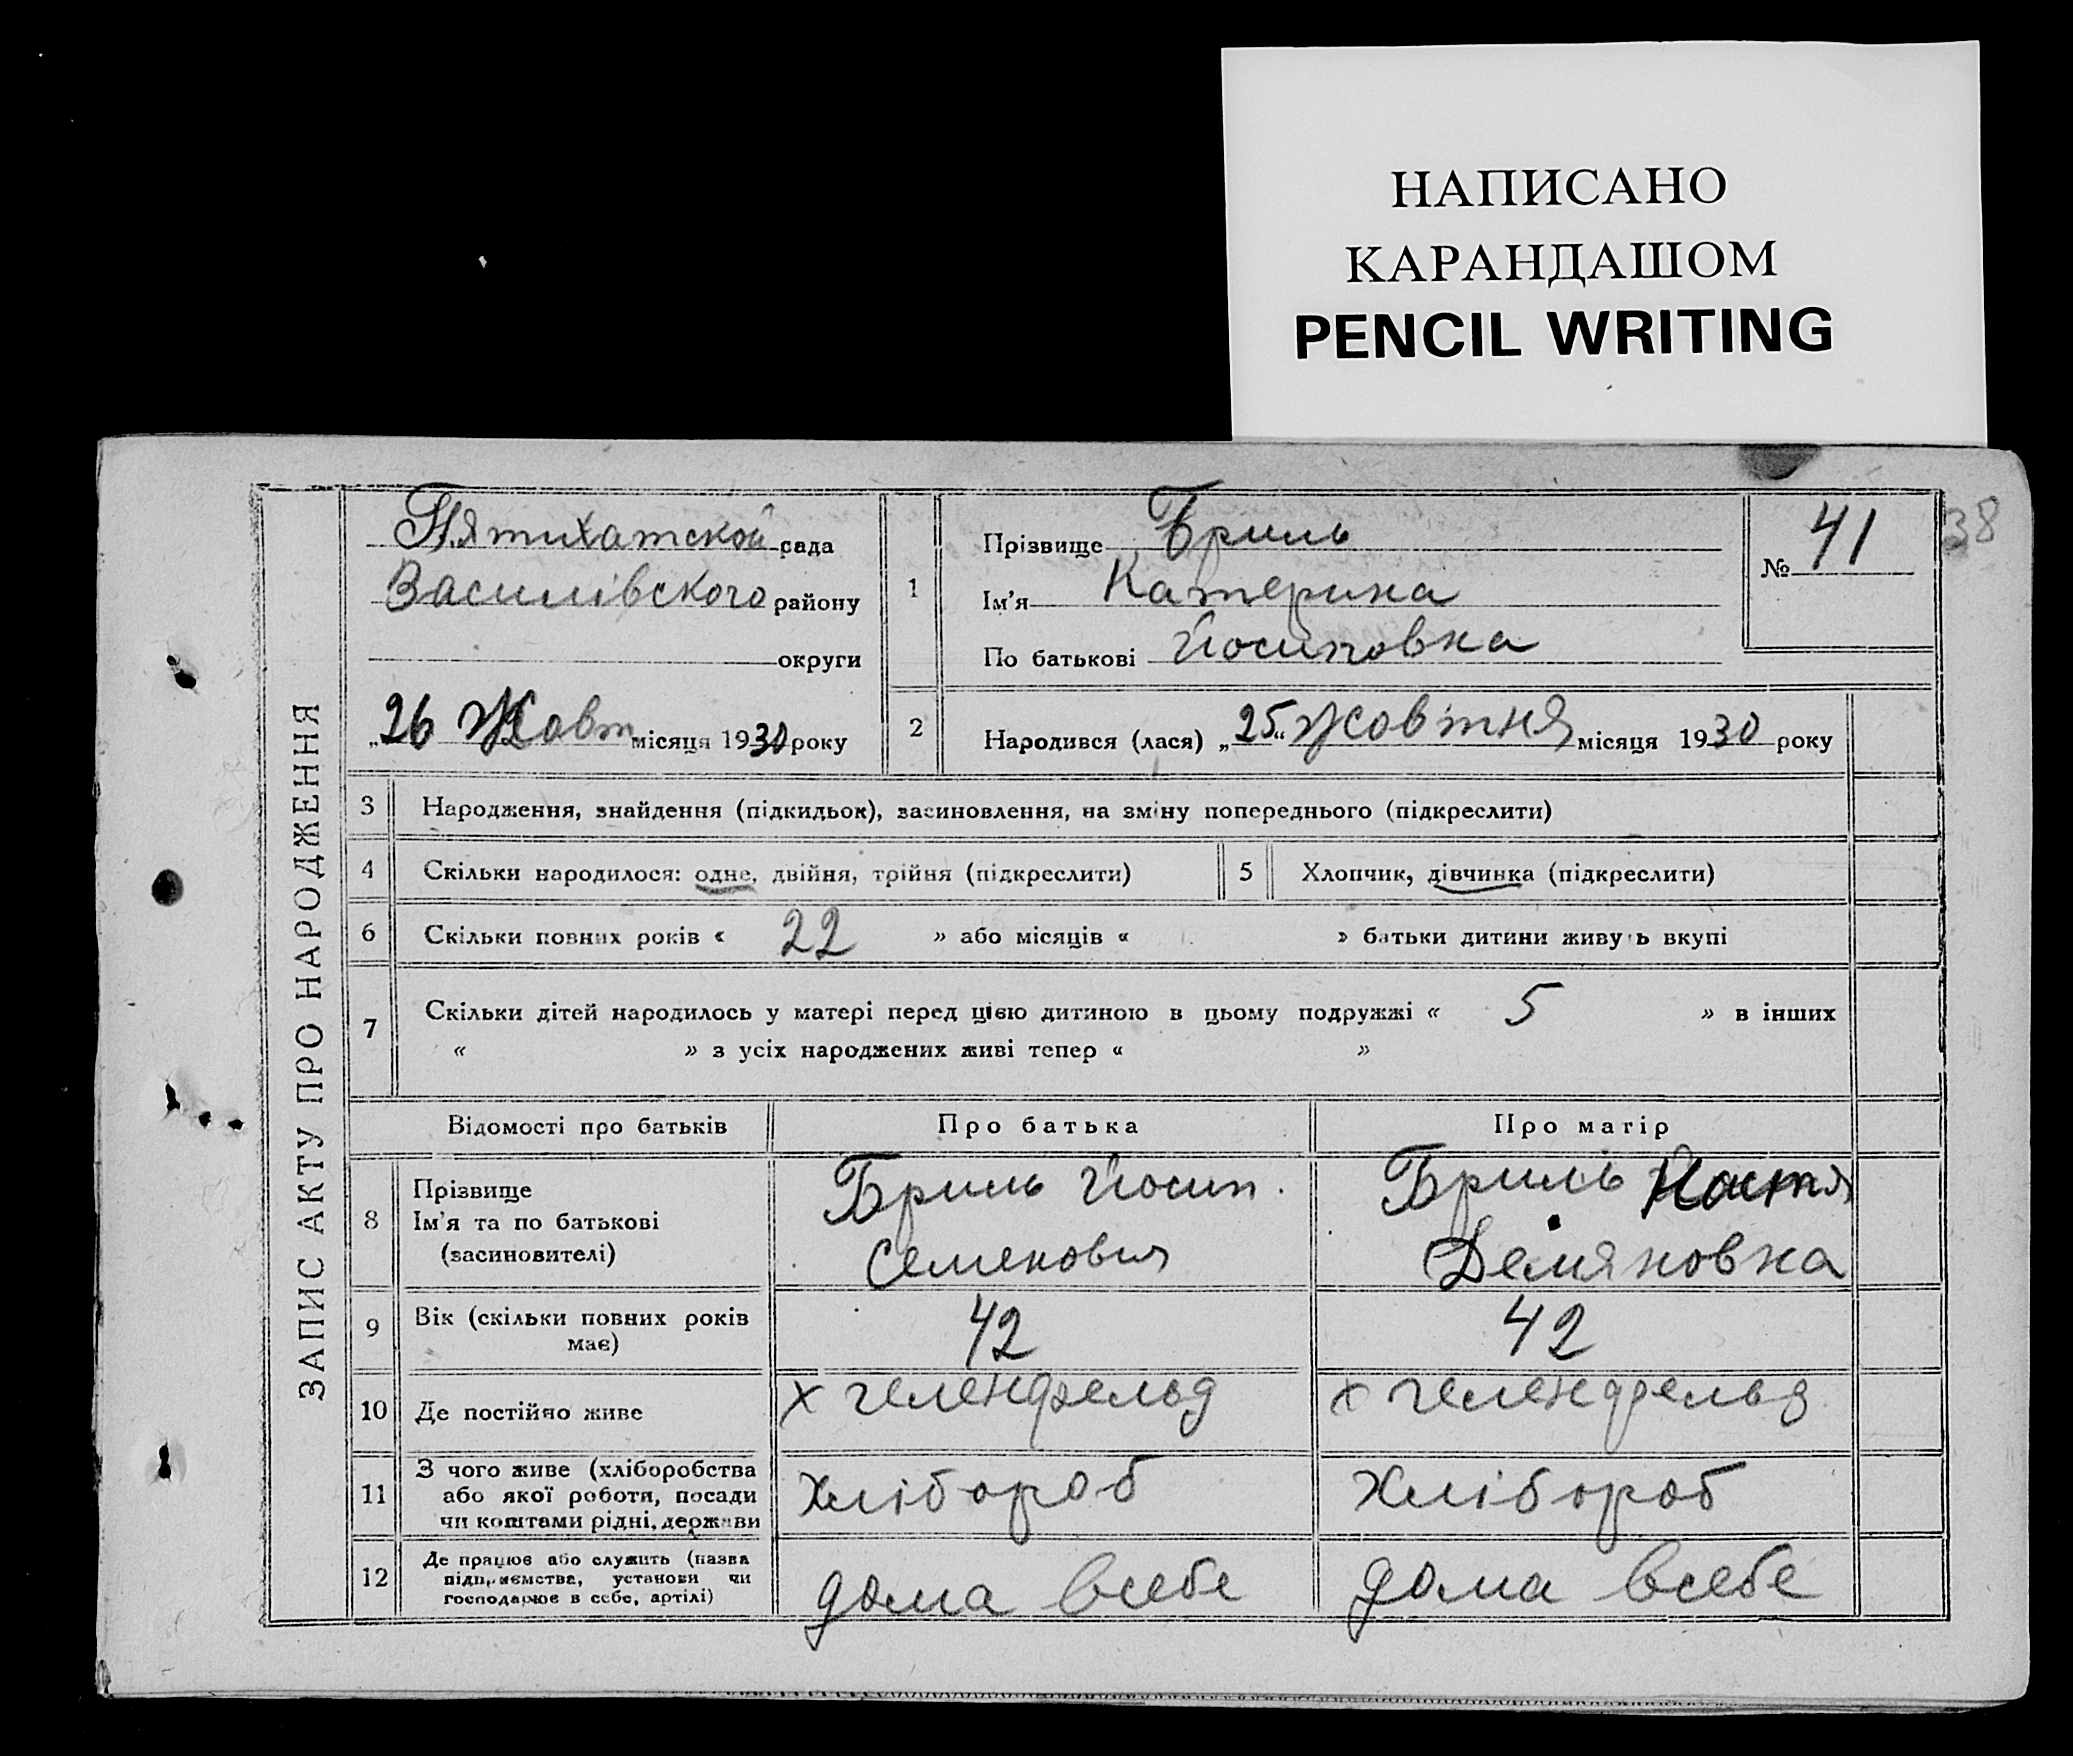 НАПИСАНО
КАРАНДАШОМ
PENCIL WRITING
38
ЗАПИС АКТУ ПРО НАРОДЖЕННЯ
Пятихатской рада
Василівского району
округи
„26 Жовт місяця 1930 року
1
Прізвище Бриль
Ім'я Катерина
По батькові Йосиповна
№ 41
2
Народився (лася) „25“ Жовтня місяця 1930 року
3 Народження, знайдення (підкидьок), засиновлення, на зміну попереднього (підкреслити)
4 Скільки народилося: одне, двійня, трійня (підкреслити) 5 Хлопчик, дівчинка (підкреслити)
6 Скільки повних років « 22 » або місяців « » батьки дитини живуть вкупі
7 Скільки дітей народилось у матері перед цією дитиною в цьому подружжі « 5 » в інших
« » з усіх народжених живі тепер « »
Відомості про батьків Про батька Про матір
8 Прізвище
Ім'я та по батькові
(засиновителі)
Бриль Йосип.
Семенович
Бриль Настя
Демяновна
9 Вік (скільки повних років
має)
42 42
10 Де постійно живе х геленфельд х геленфельд
11 З чого живе (хліборобства
або якої роботи, посади
чи коштами рідні, держави
Хлібороб Хлібороб
12 Де працює або служить (назва
підприємства, установи чи
господарює в себе, артілі)
дома всебе дома всебе